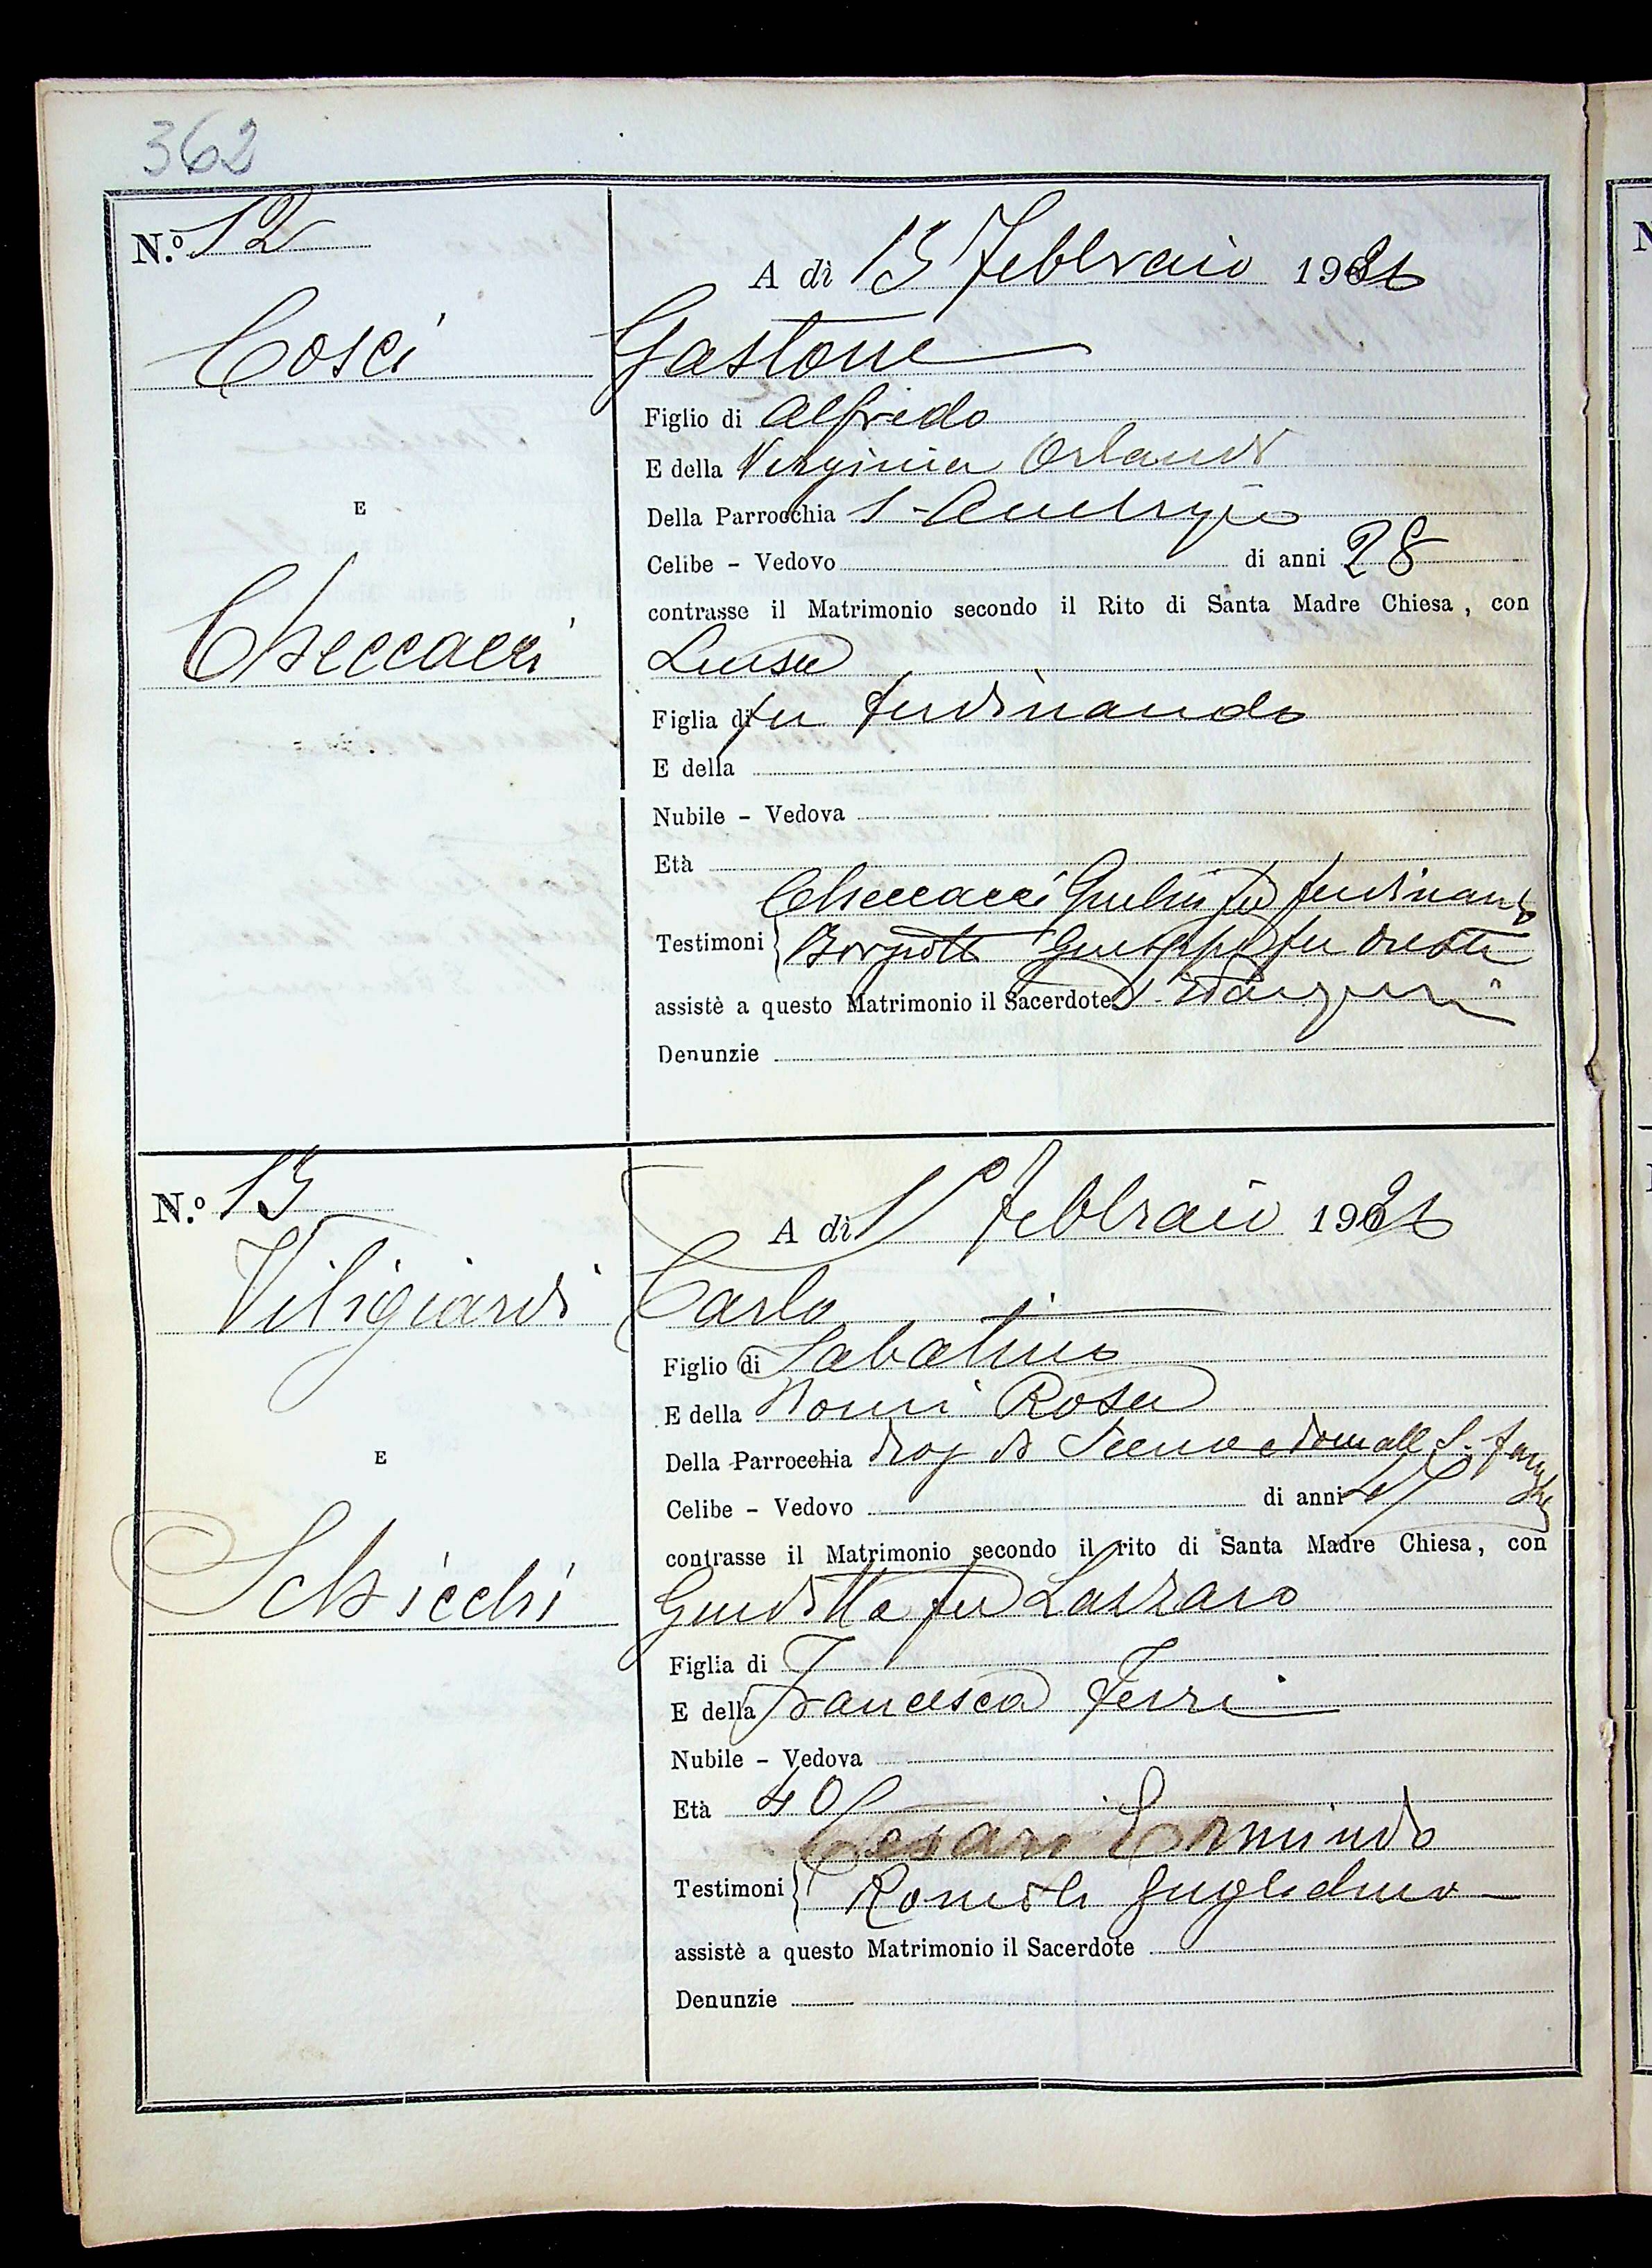 362
N.º 12
A dì 13 Febbraio 1926
Cosci
Gastone
Figlio di Alfredo
E della Virginia Orlandi
E
Della Parrocchia S.
Celibe – Vedovo di anni 28
contrasse il Matrimonio secondo il Rito di Santa Madre Chiesa, con
Checcacci
Luisa
Figlia di fu Ferdinando
E della
Nubile – Vedova
Età
Checcacci Giulio fu Ferdinando
Testimoni Giuseppe fu Oreste
assistè a questo Matrimonio il Sacerdote
Denunzie
N.º 13
A dì Febbraio 1926
Viligiardi
Carlo
Figlio di Sabatino
E della Nonni Rosa
E
Della Parrocchia di Siena e dom all S.
Celibe – Vedovo di anni
contrasse il Matrimonio secondo il rito di Santa Madre Chiesa, con
Schicchi
Giuditta fu Lazzaro
Figlia di
E della Francesca Ferri
Nubile – Vedova
Età 40
Cesari Ermindo
Testimoni Romoli Guglielmo
assistè a questo Matrimonio il Sacerdote
Denunzie